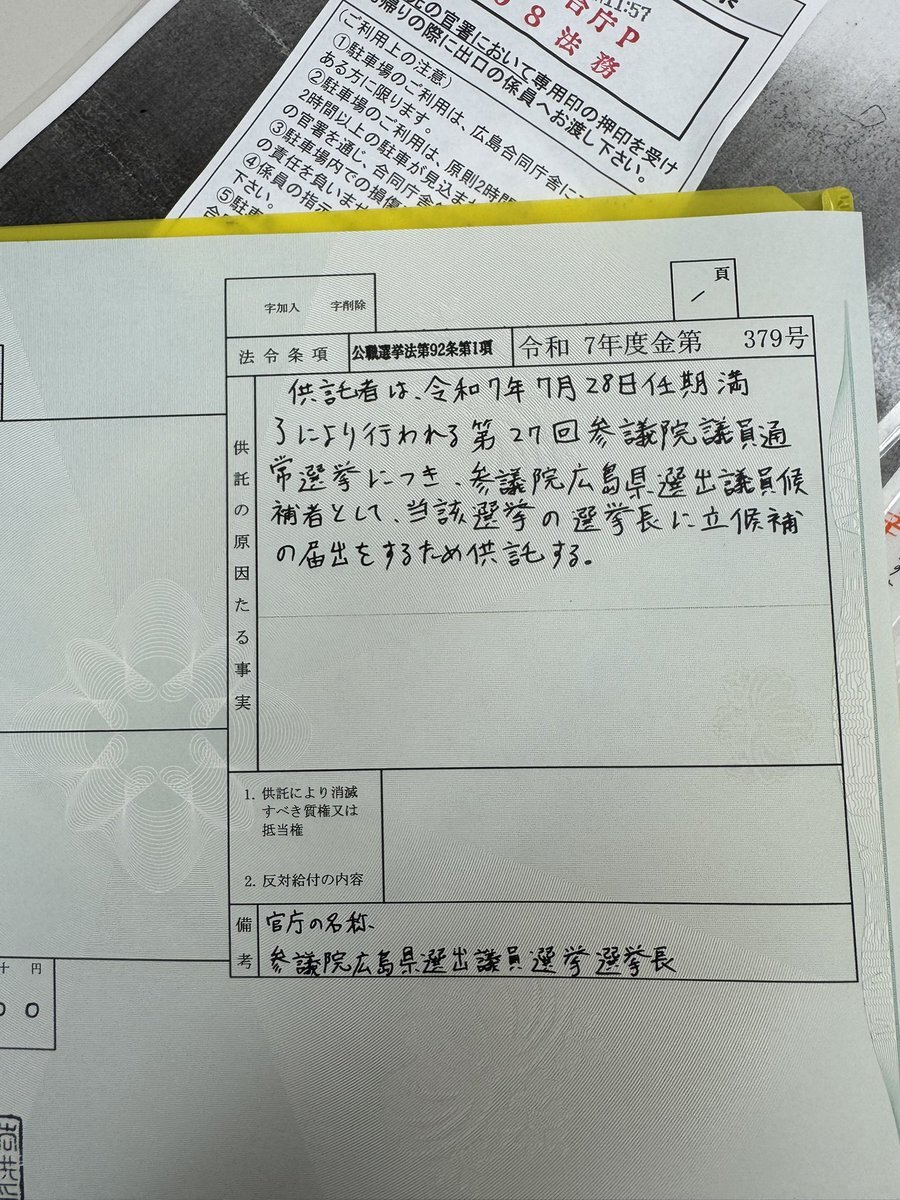 11:57
合庁P
08法務
上の官署において専用印の押印を受け
帰りの際に出口の係員へお渡し下さい。
(ご利用上の注意)
①駐車場のご利用は、広島合同庁舎に
ある方に限ります。
②駐車場のご利用は、原則2時間
2時間以上の駐車が見込ま
の官署を通じ、合同庁舎
③駐車場内での損傷
の責任を負いませ
④係員の指示
下さい。
⑤駐車
頁
字加入 字削除
法令条項 公職選挙法第92条第1項 令和 7年度金第 379号
供託の原因たる事実
供託者は、令和7年7月28日任期満
了により行われる第27回参議院議員通
常選挙につき、参議院広島県選出議員候
補者として、当該選挙の選挙長に立候補
の届出をするため供託する。
1. 供託により消滅
すべき質権又は
抵当権
2. 反対給付の内容
備考
官庁の名称、
参議院広島県選出議員選挙選挙長
十 円
0 0